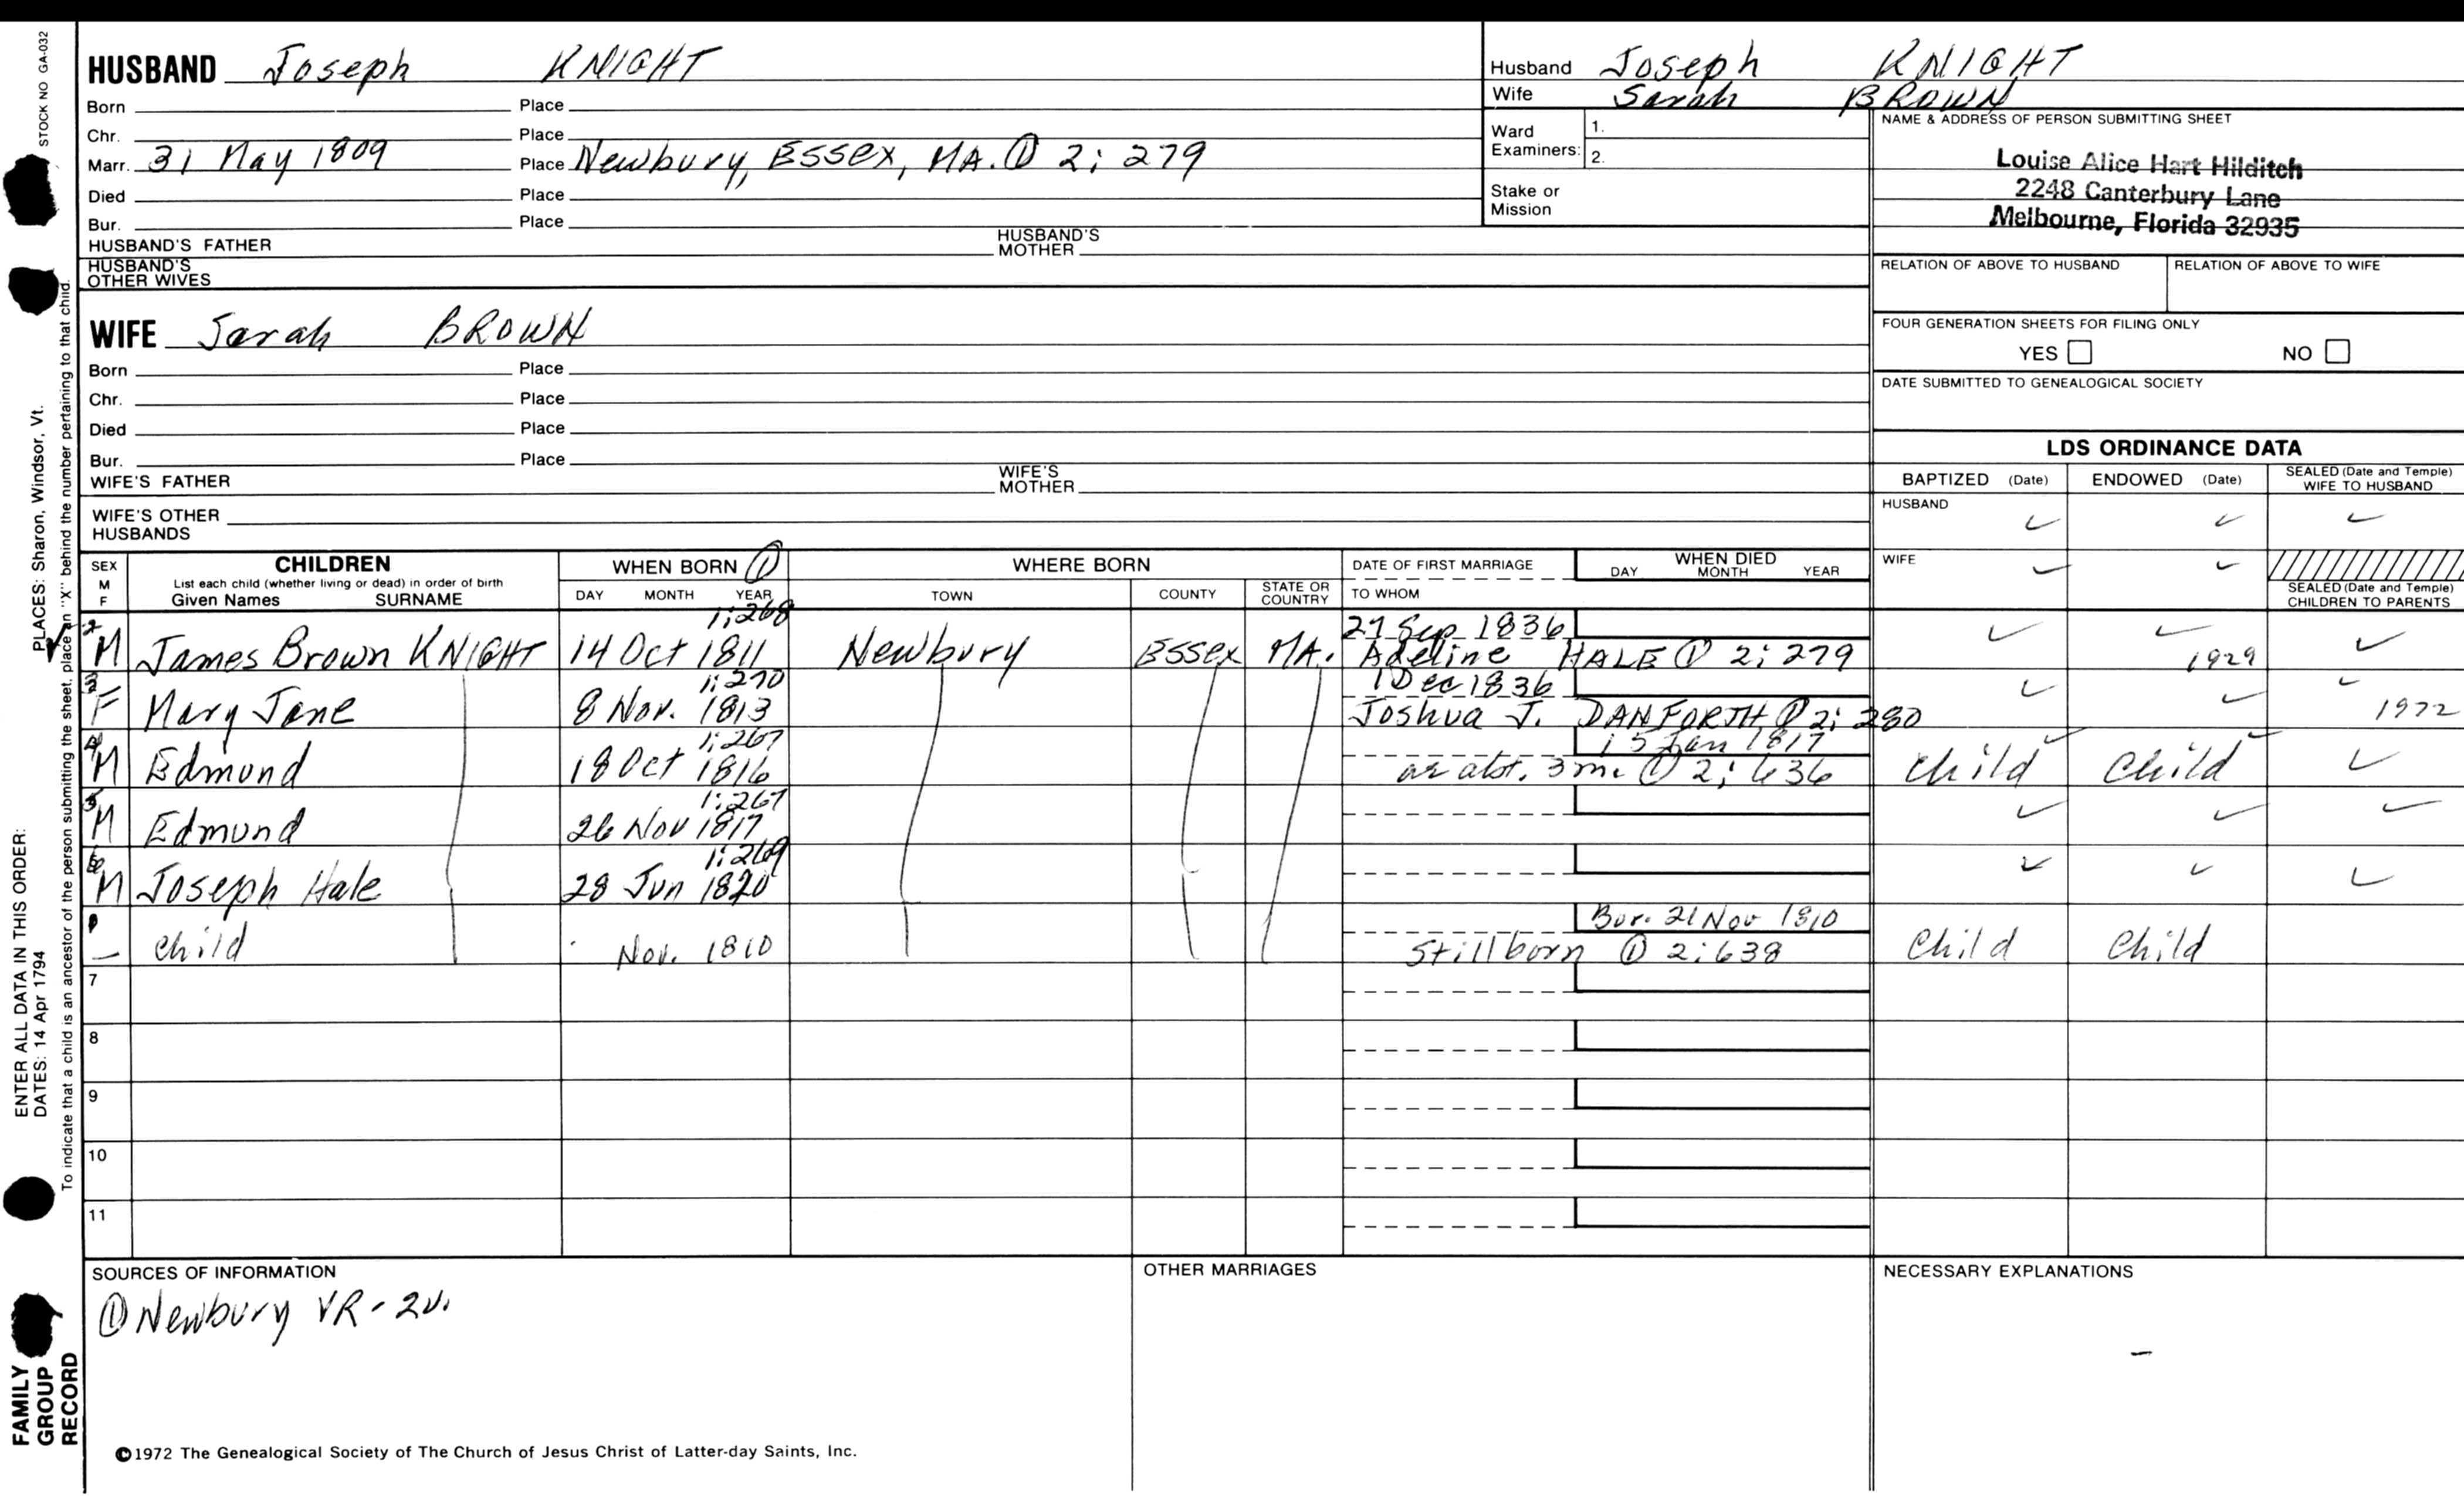 STOCK NO GA-032
HUSBAND Joseph KNIGHT
Born Place
Chr. Place
Marr. 31 May 1809 Place Newbury, Essex, MA. ① 2; 279
Died Place
Bur. Place
HUSBAND'S FATHER HUSBAND'S MOTHER
HUSBAND'S OTHER WIVES
Husband Joseph KNIGHT
Wife Sarah BROWN
Ward Examiners: 1.
2.
Stake or Mission
NAME & ADDRESS OF PERSON SUBMITTING SHEET
Louise Alice Hart Hilditch
2248 Canterbury Lane
Melbourne, Florida 32935
RELATION OF ABOVE TO HUSBAND RELATION OF ABOVE TO WIFE
FOUR GENERATION SHEETS FOR FILING ONLY
YES NO
DATE SUBMITTED TO GENEALOGICAL SOCIETY
WIFE Sarah BROWN
Born Place
Chr. Place
Died Place
Bur. Place
WIFE'S FATHER WIFE'S MOTHER
WIFE'S OTHER HUSBANDS
LDS ORDINANCE DATA
BAPTIZED (Date) ENDOWED (Date) SEALED (Date and Temple) WIFE TO HUSBAND
HUSBAND ✓ ✓ ✓
WIFE ✓ ✓
SEALED (Date and Temple) CHILDREN TO PARENTS
SEX M F
CHILDREN
List each child (whether living or dead) in order of birth
Given Names SURNAME
WHEN BORN ①
DAY MONTH YEAR
WHERE BORN
TOWN COUNTY STATE OR COUNTRY
DATE OF FIRST MARRIAGE
TO WHOM
WHEN DIED
DAY MONTH YEAR
1;268 27 Sep 1836
2 M James Brown KNIGHT 14 Oct 1811 Newbury Essex MA. Adeline HALE ① 2; 279 ✓ ✓ 1929 ✓
1;270 1 Dec 1836
3 F Mary Jane 8 Nov. 1813 Joshua J. DANFORTH ① 2; 280 ✓ ✓ ✓ 1972
1;267 15 Jan 1817
4 M Edmund 18 Oct 1816 ae abt. 3 m. ① 2; 636 child ✓ Child ✓ ✓
1;267
5 M Edmund 26 Nov 1817 ✓ ✓ ✓
1;269
6 M Joseph Hale 28 Jun 1820 ✓ ✓ ✓
Bur. 21 Nov 1810
1 — child Nov. 1810 Stillborn ① 2; 638 Child Child
7
8
9
10
11
SOURCES OF INFORMATION
① Newbury VR - 2v.
OTHER MARRIAGES
NECESSARY EXPLANATIONS
©1972 The Genealogical Society of The Church of Jesus Christ of Latter-day Saints, Inc.
PLACES: Sharon, Windsor, Vt.
ENTER ALL DATA IN THIS ORDER:
DATES: 14 Apr 1794
To indicate that a child is an ancestor of the person submitting the sheet, place an "X" behind the number pertaining to that child.
FAMILY
GROUP
RECORD